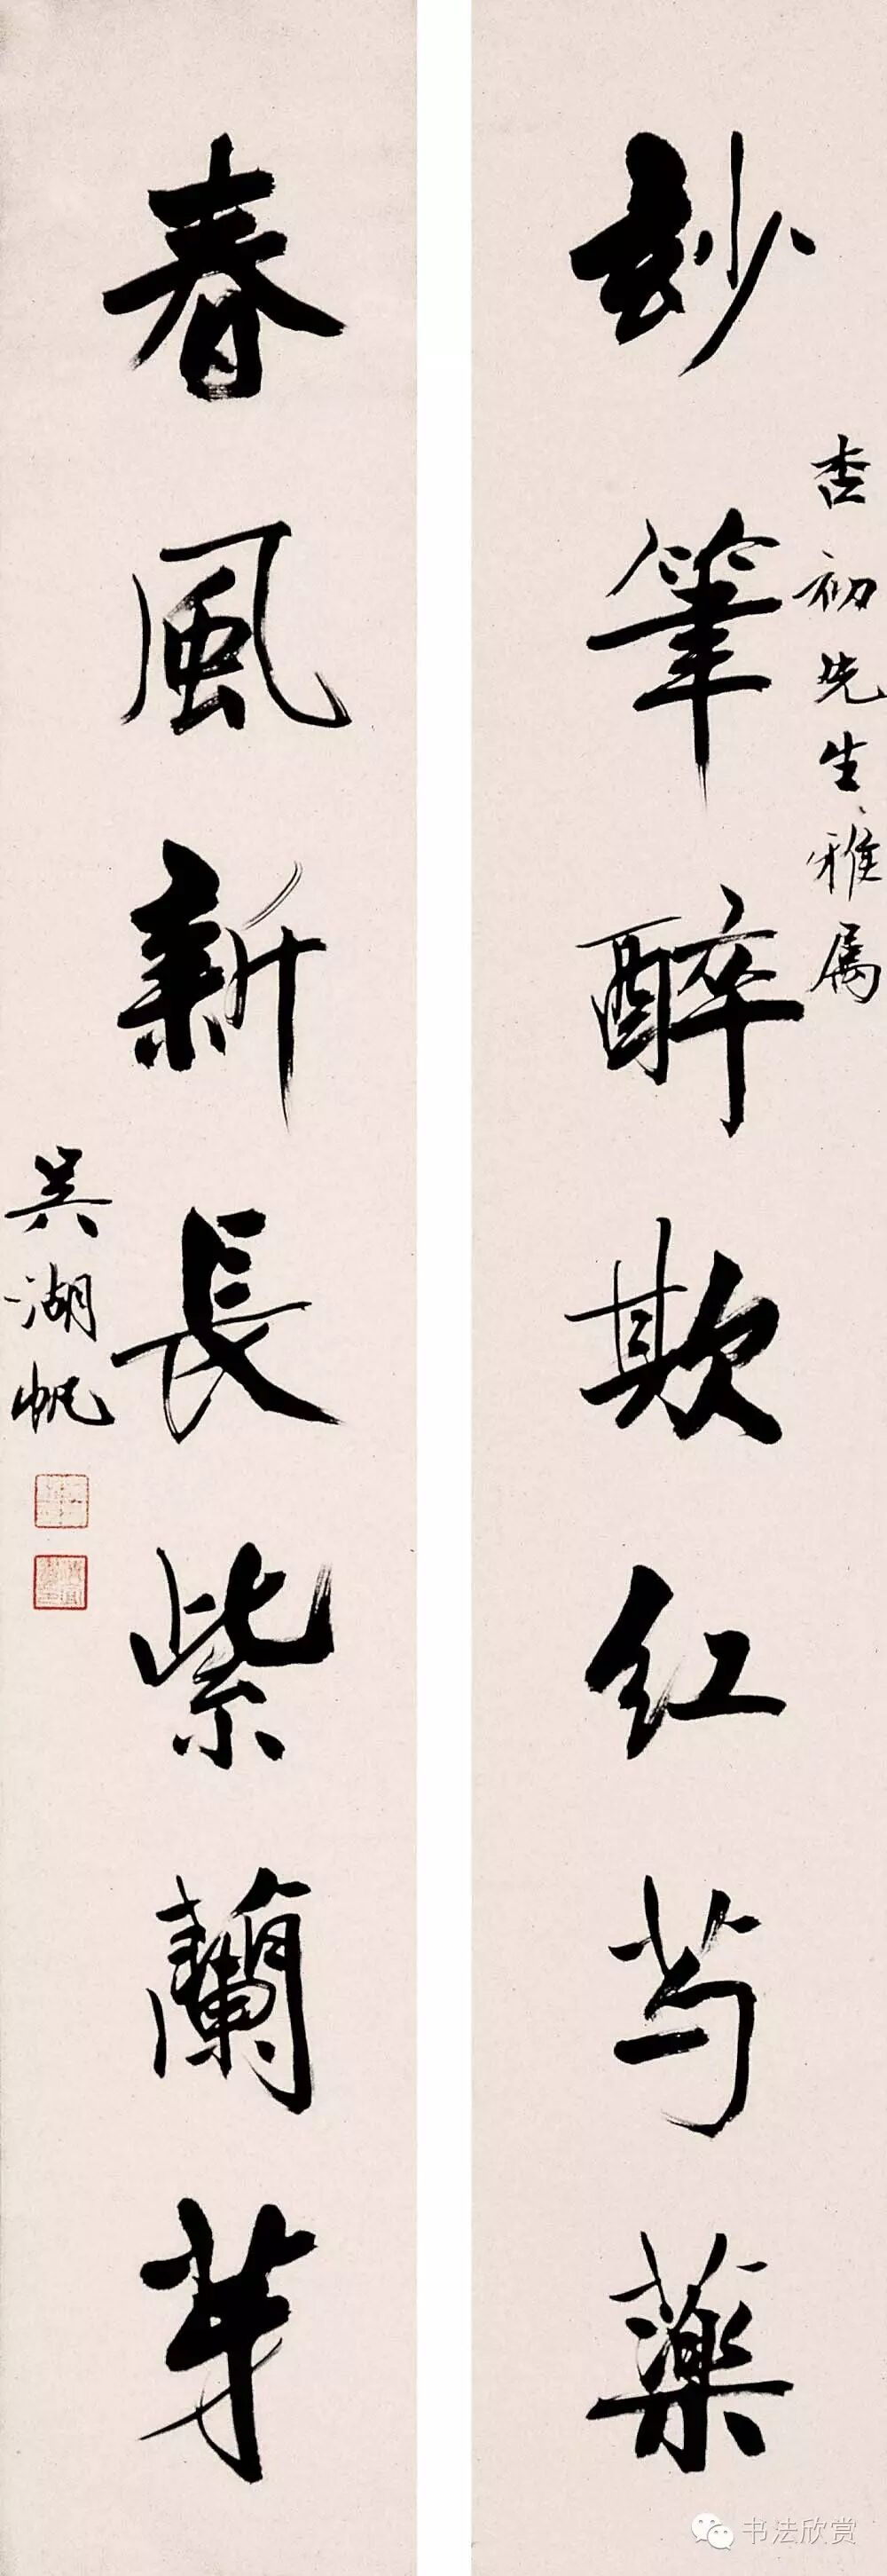 玅筆醉欺红芍藥
杏初先生雅属
春風新長紫蘭芽
吴湖帆
书法欣赏